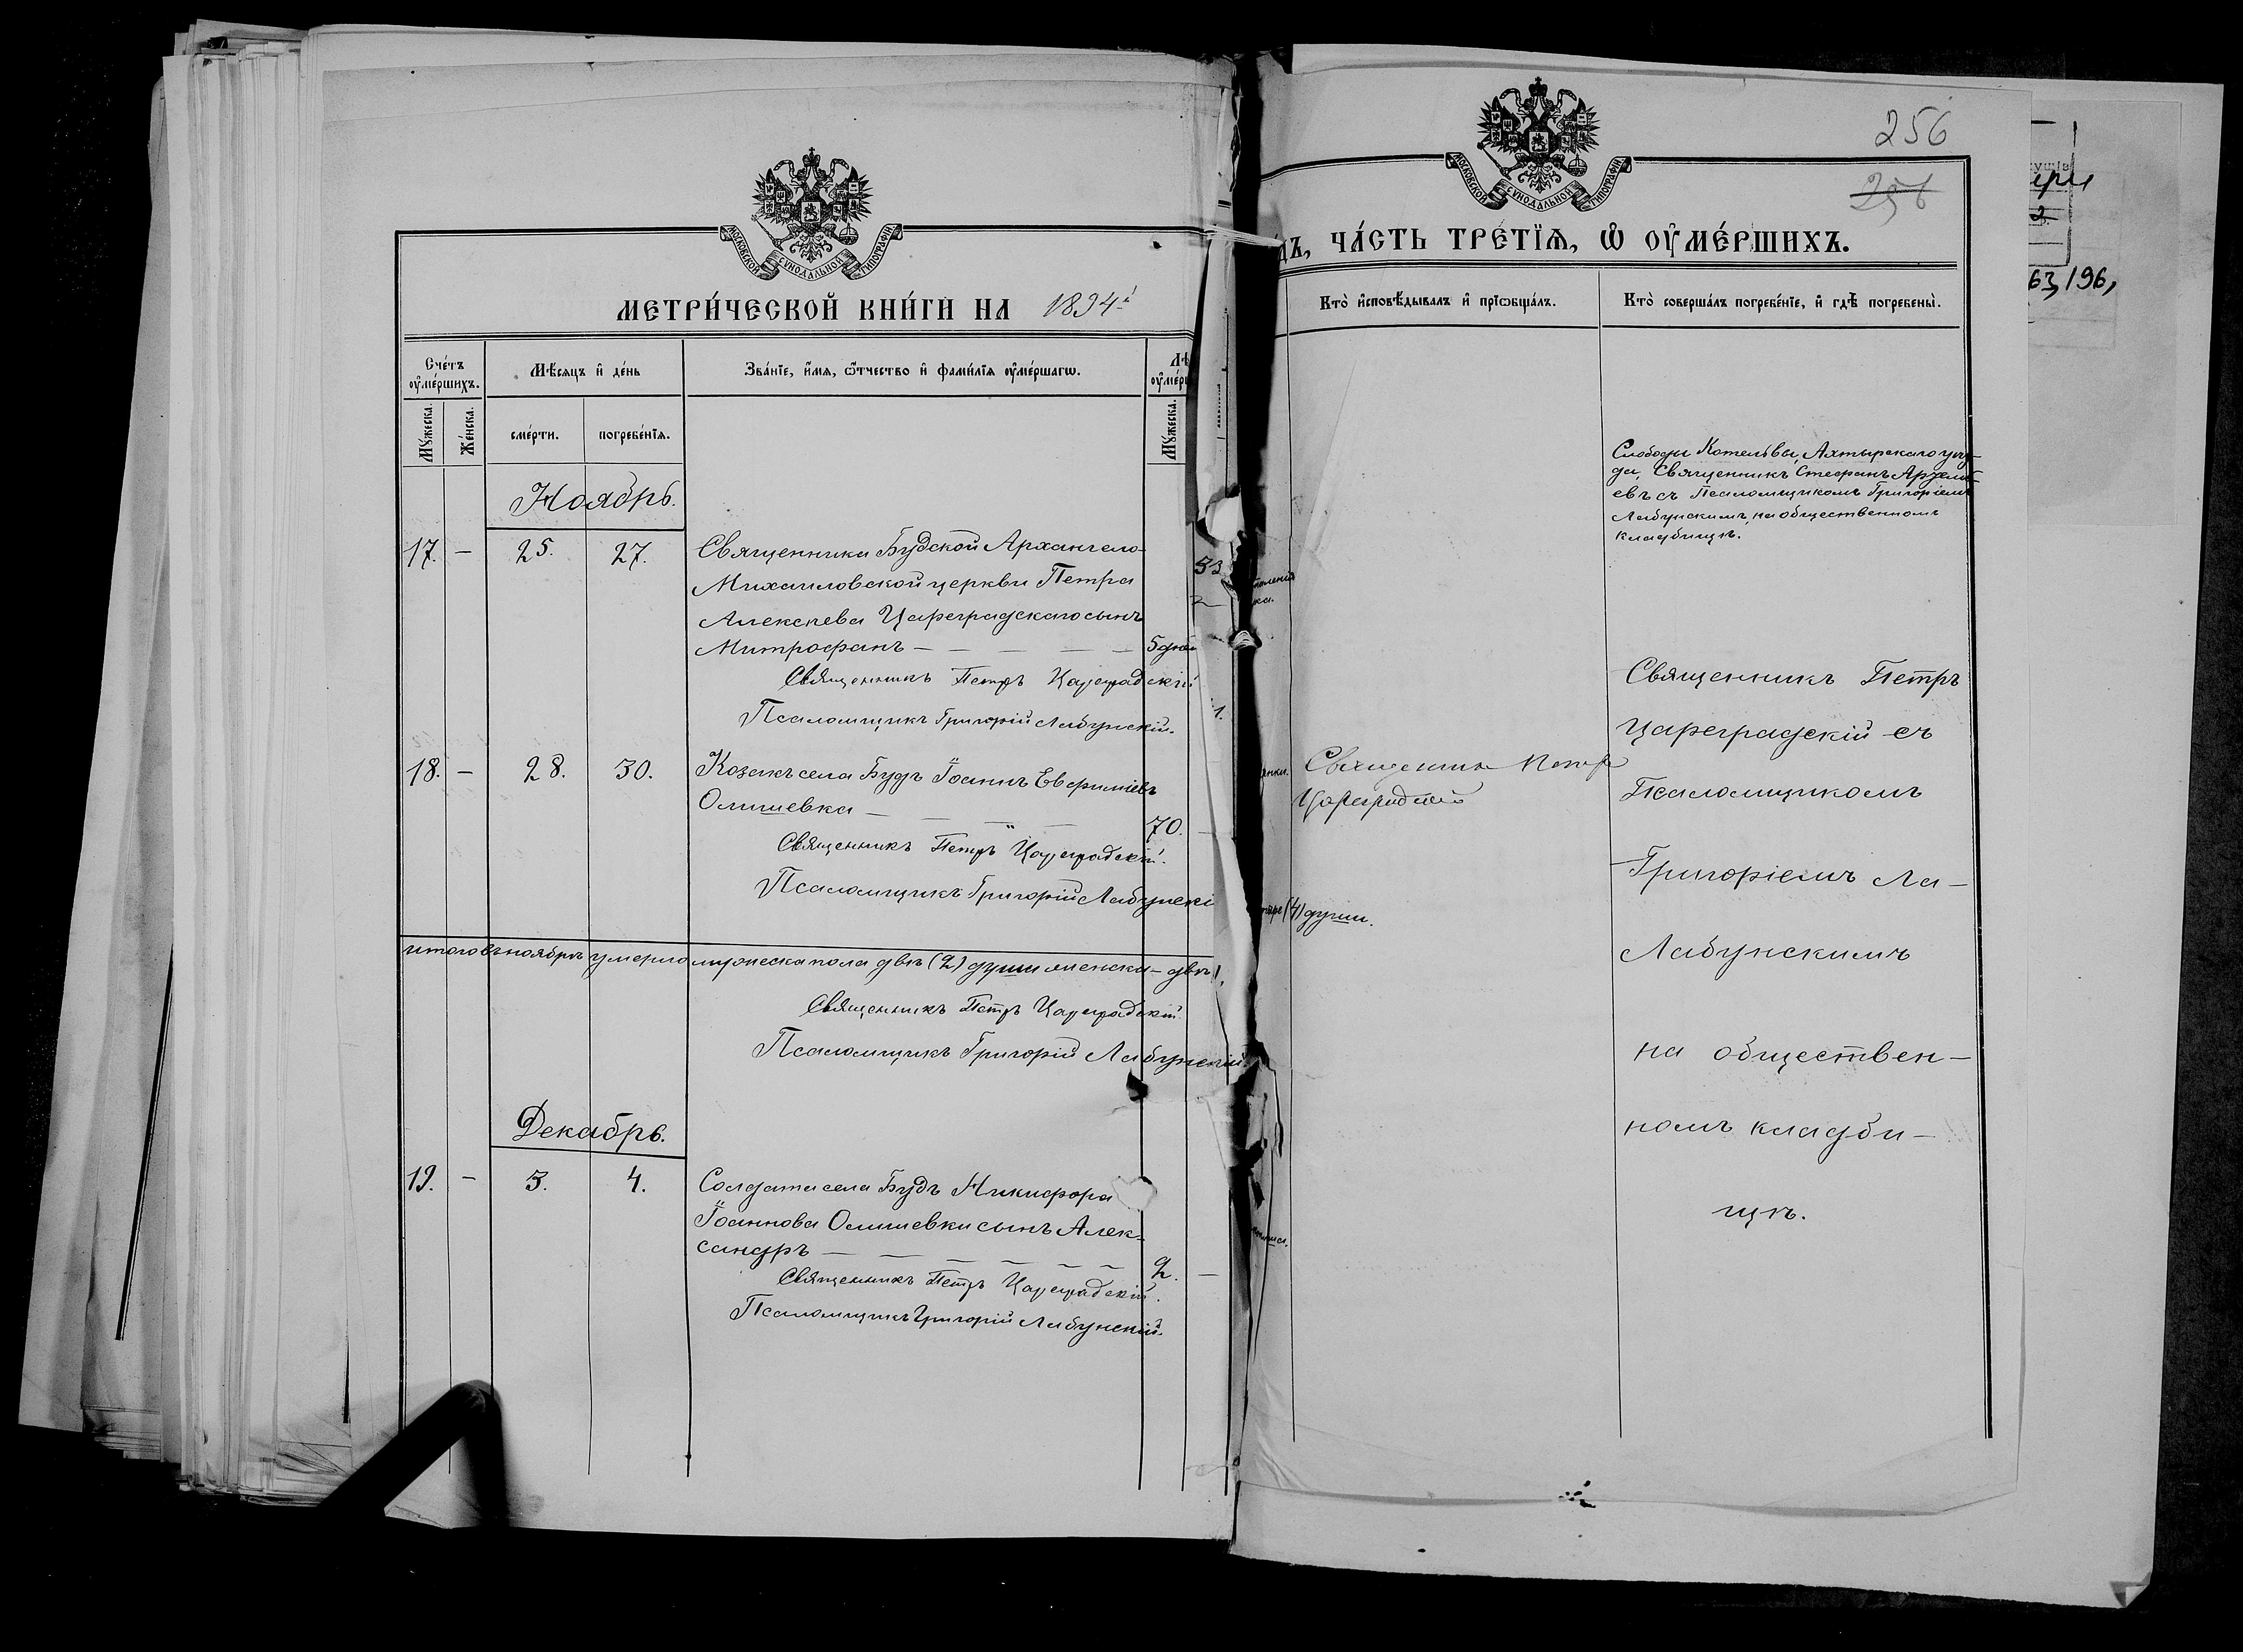 МОСКОВСКОЙ СѴНОДАЛЬНОЙ ТИПОГРАФІИ
МЕТРИ́ЧЕСКОЙ КНИ́ГИ НА 1894й
Сче́тъ оу҆ме́ршихъ.
Мѣ́сяцъ и҆ де́нь
Зва́нїе, и҆́мѧ, ѻ҆́тчество и҆ фами́лїѧ оу҆ме́ршагѡ.
Лѣ
оу҆ме́рш
Мꙋ́жеска.
Же́нска.
сме́рти.
погребе́нїѧ.
Мꙋ́жеска.
Ноябрь.
17. — 25. 27. Священника Будской Архангело-
Михаиловской церкви Петра
Алексѣева Цареградскаго сынъ
Митрофанъ — — — — — 5 дней
Священникъ Петръ Цареградскій
Псаломщикъ Григорій Лабунскій.
18. — 28. 30. Козакъ села Будъ Іоаннъ Евфиміевъ
Олишевка — — — — 70. —
Священникъ Петръ Цареградскій.
Псаломщикъ Григорій Лабунскі
Итого въ ноябрѣ умерло мужеска пола двѣ (2) души женска — двѣ
Священникъ Петръ Цареградскій
Псаломщикъ Григорій Лабунскій.
Декабрь.
19. — 3. 4. Солдата села Будъ Никифора
Іоаннова Олишевки сынъ Алек-
сандръ — — — — — 2. —
Священникъ Петръ Цареградскій.
Псаломщикъ Григорій Лабунскій.
256
256
МОСКОВСКОЙ СѴНОДАЛЬНОЙ ТИПОГРАФІИ
дъ, ЧА́СТЬ ТРЕ́ТЇѦ, Ѡ҆ ОУ҆МЕ́РШИХЪ.
Кто̀ и҆сповѣ́дывалъ и҆ прїѡбща́лъ.
Кто̀ соверша́лъ погребе́нїе, и҆ гдѣ̀ погребены̀.
Слободы Котельвы, Ахтырскаго уѣз-
да, Священникъ Стефанъ
евъ съ Псаломщикомъ Григоріемъ
Лабунскимъ, на общественномъ
кладбищѣ.
Священникъ Петръ
Цареградскій
Священникъ Петръ
Цареградскій съ
Псаломщикомъ
Григоріемъ Ла-
Лабунскимъ
на обществен-
номъ кладби-
щѣ.
(4) души.
63, 196,